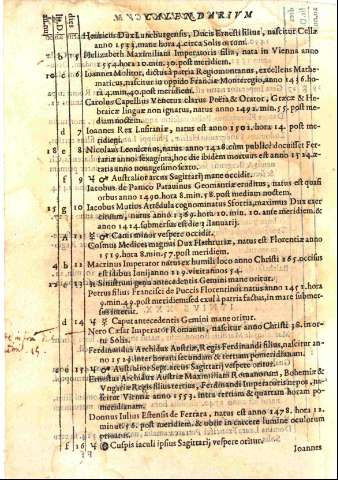 CALENDARIUM
Henricus Dux Luneburgensis, Ducis Ernesti filius, nascitur Cellæ
anno 1533. mane hora 4. circa Solis ortum.
7 b 5 Helizabeth Maximiliani Imperatoris filia, nata in Vienna anno
1554. hora 10. min. 30. post meridiem.
c 6 Ioannes Molitor, dictus à patria Regiomontanus, excellens Mathe-
maticus, nascitur in oppido Franciæ Monteregio, anno 1436. ho-
ra 4. min. 40. post meridiem.
Carolus Capellus Venetus clarus Poëta & Orator, Græcæ & He-
braicæ linguæ non ignarus, natus anno 1492. min. 55. post me-
diam noctem.
d 7 Ioannes Rex Lusitaniæ, natus est anno 1502. hora 14. post me-
ridiem.
18 e 8 Nicolaus Leonicenus, natus anno 1428. cum publicè docuisset Fer-
rariæ annos sexaginta, hoc die ibidem mortuus est anno 1524. æ-
tatis anno nonagesimo sexto.
f 9 Australior arcus Sagittarij mane occidit.
Iacobus de Panico Patauinus Geomantiæ eruditus, natus est quasi
orbus anno 1490. hora 8. min. 58. post mediam noctem.
15 g 10 Iacobus Mutius Atedula cognominatus Sfortia, maximus Dux exer
cituum, natus anno 1369. hora 10. min. 10. ante meridiem, &
anno 1424. submersus est die 3 Ianuarij.
A 11 Canis minor vespere occidit.
Cosmus Medices magnus Dux Hæthruriæ, natus est Florentiæ anno
1519. hora 8. min. 57. post meridiem.
4 b 12 Macrinus Imperator natus ex humili loco anno Christi 165. occisus
est idibus Iunij anno 219. vixit annos 54.
c 13 Sinistrum genu antecedentis Gemini mane oritur.
Petrus filius Francisci de Puccis Florentinus natus anno 1452. hora
9. min. 49. post meridiem sed exul à patria factus, in mare submer-
sus interiit.
d 14 Caput antecedentis Gemini mane oritur.
Nero Cæsar Imperator Romanus, nascitur anno Christi 38. in or-
tu Solis.
Ferdinandus Archidux Austriæ, Regis Ferdinandi filius, nascitur an-
no 1529. inter horam secundam & tertiam pomeridianam.
e 15 Australior Sept. arcus Sagittarij vespere oritur.
Ernestus Archidux Austriæ Maximiliani Romanorum, Bohemiæ &
Vngariæ Regis filius tertius, Ferdinandi Imperatoris nepos, na-
scitur Viennæ anno 1553. intra tertiam & quartam horam po-
meridianam.
Domnus Iulius Estensis de Ferrara, natus est anno 1478. hora 12.
minut. 56. post meridiem, & obiit in carcere lumine oculorum
priuatus.
f 16 Cuspis iaculi ipsius Sagittarij vespere oritur.
Ioannes